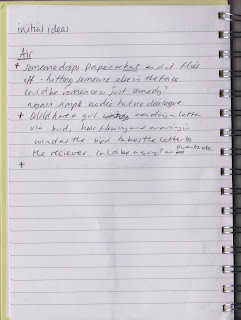 initial ideas
Air
+ someone drops paper or hat and it flies
off - hitting someone else in the face
could be romance or just comedy?
again simple audio but no dialogue.
+ Could have a girl sending a letter
via bird, hair flowing and waving in
wind as the bird takes the letter to
the reciever could be a guy? or parents etc
+